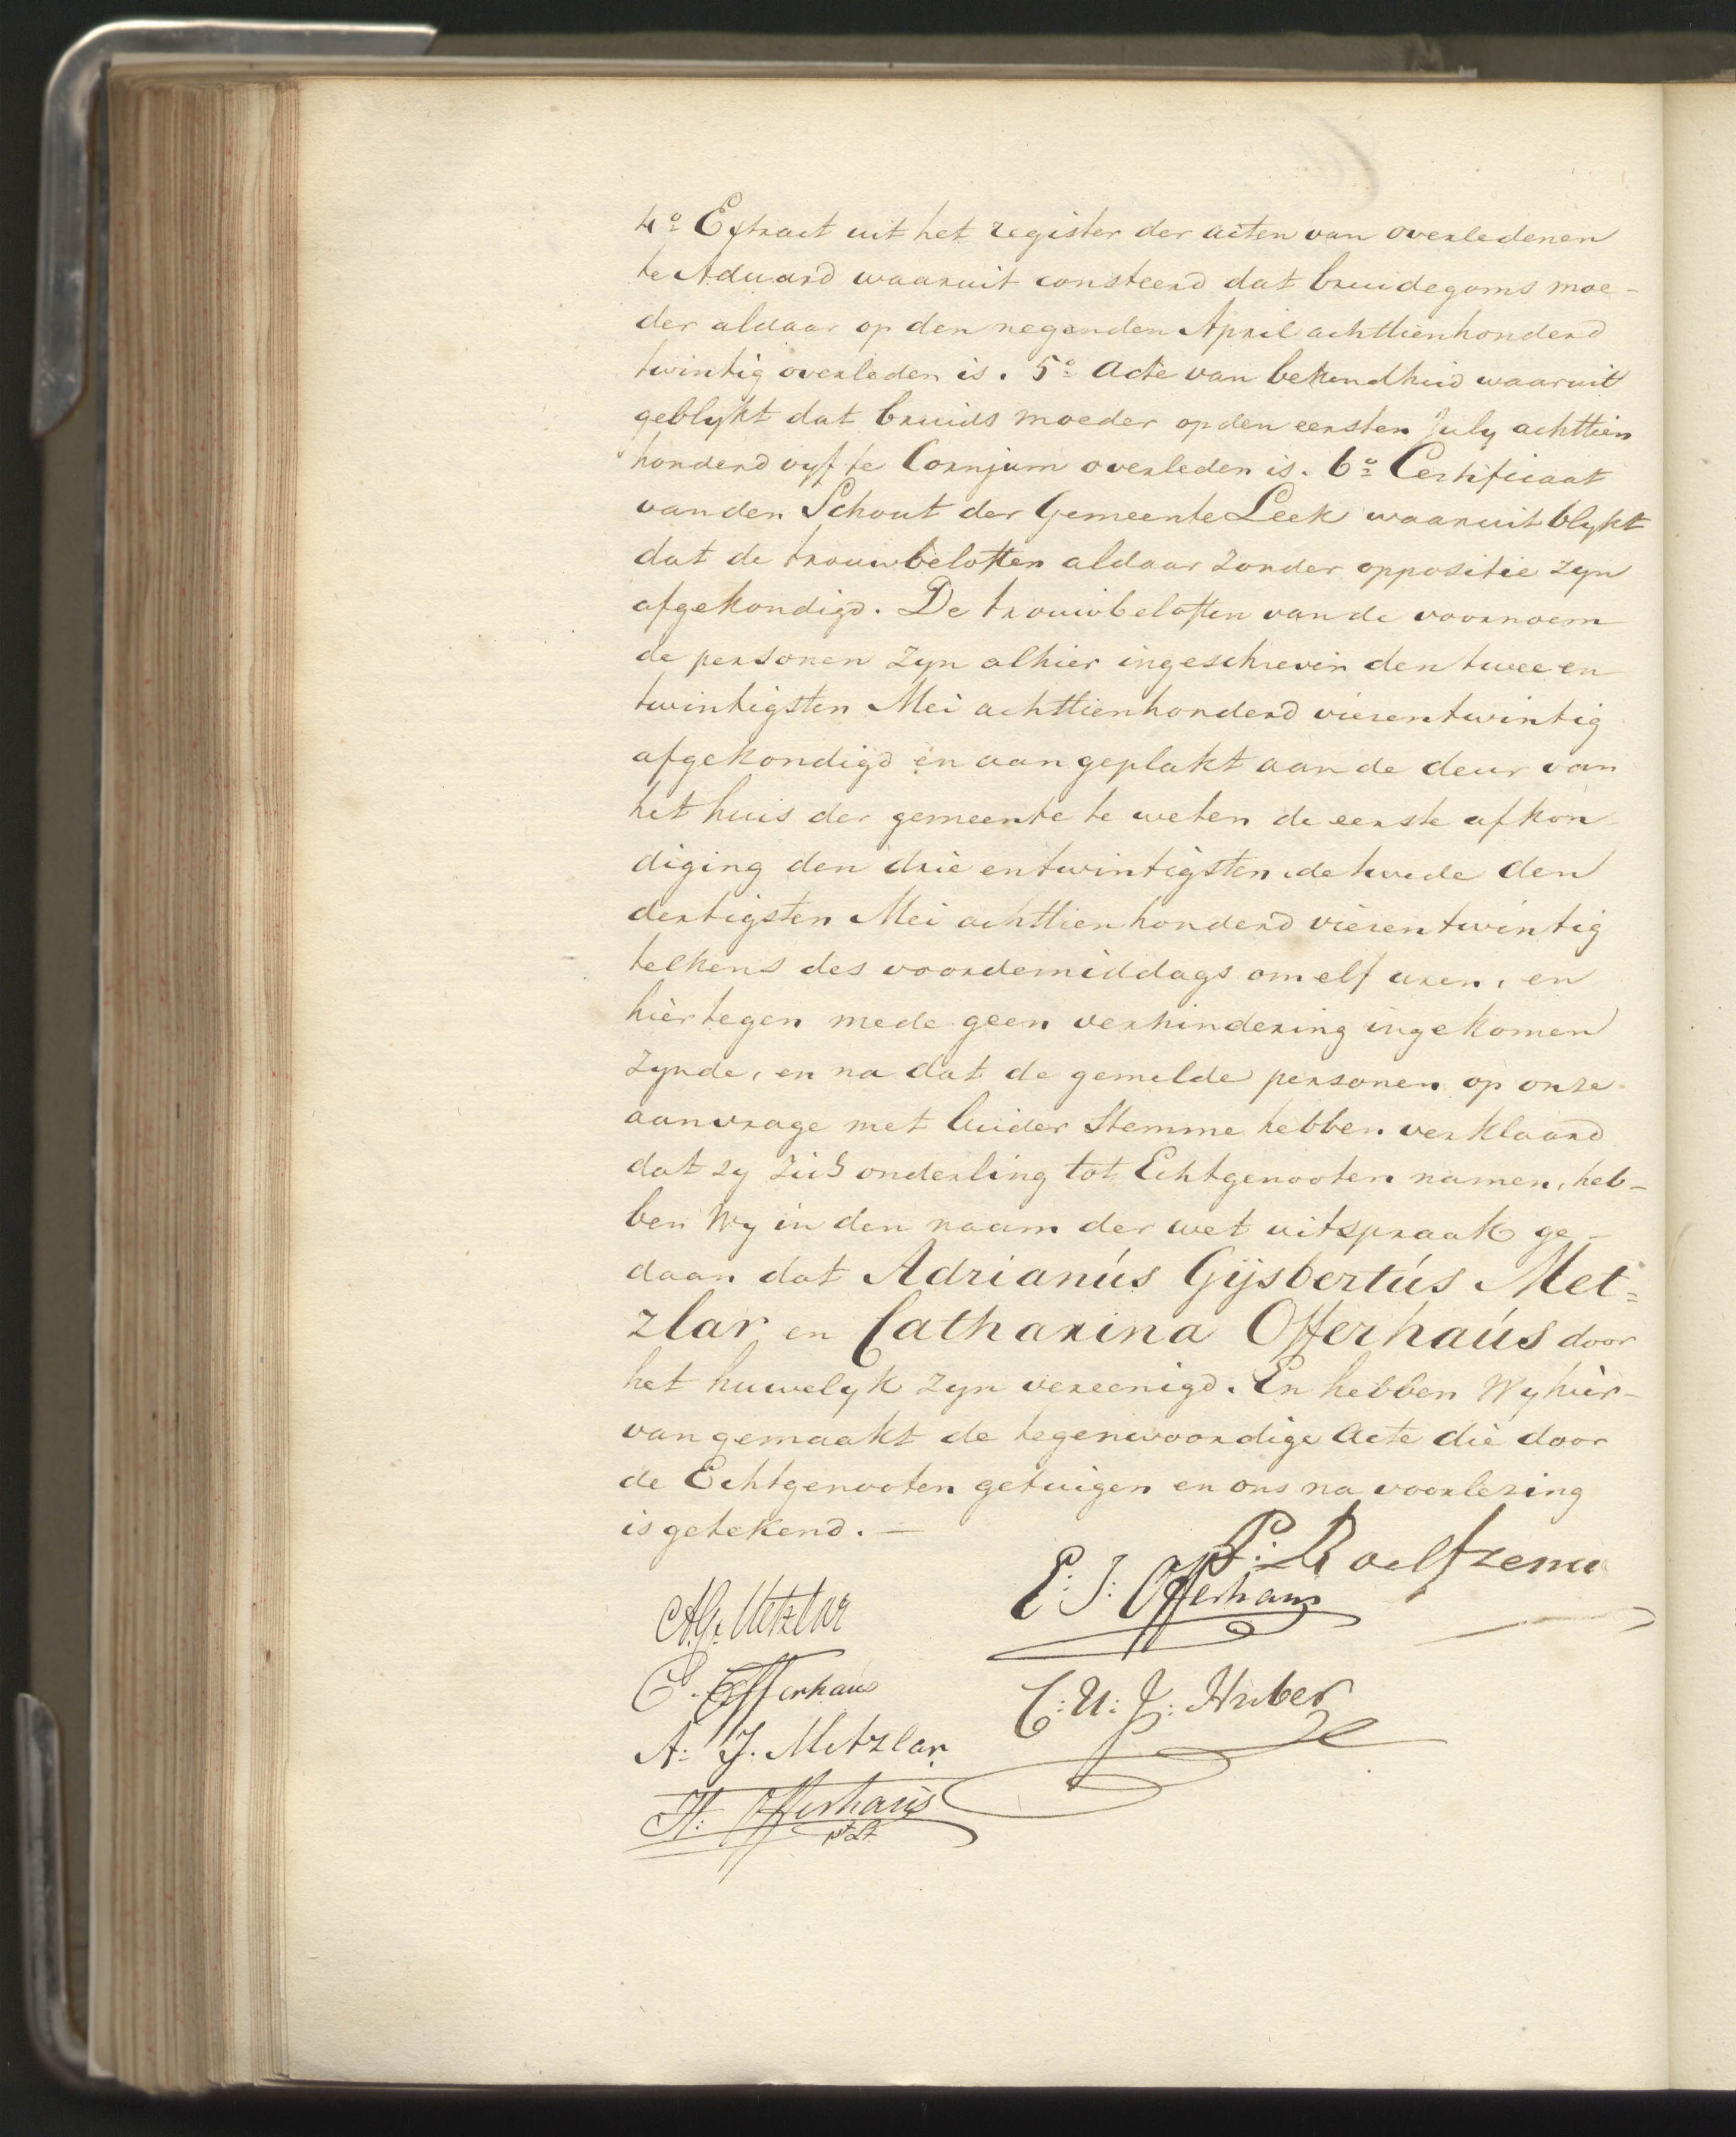 4º Extract uit het register der acten van overledenen
te Aduard waaruit consteerd dat bruidegoms moe-
der aldaar op den negenden April achttienhonderd
twintig overleden is. 5º Acte van bekendheid waaruit
geblykt dat bruids moeder op den eersten July achttien
honderd vyf te Cornjum overleden is. 6º Certificaat
van den Schout der Gemeente Leek waaruit blykt
dat de trouwbeloften aldaar zonder oppositie zyn
afgekondigd. De trouwbeloften van de voornoem
de personen zyn alhier ingeschreven den twee en
twintigsten Mei achttienhonderd vierentwintig
afgekondigd en aangeplakt aan de deur van
het huis der gemeente te weten de eerste afkon-
diging den drie entwintigsten, de twede den
dertigsten Mei achttienhonderd vierentwintig
telkens des voordemiddags om elf uren, en
hiertegen mede geen verhindering ingekomen
zynde, en na dat de gemelde personen op onze
aanvrage met luider Stemme hebben verklaard
dat zy zich onderling tot Echtgenooten namen, heb-
ben Wy in den naam der wet uitspraak ge-
daan dat Adrianús Gijsbertús Met=
zlar en Catharina Offerhaús door
het huwelyk zyn vereenigd. En hebben Wy hier-
van gemaakt de tegenwoordige Acte die door
de Echtgenooten getuigen en ons na voorlezing
is getekend. —
P: Roelfzema
E: J: Offerhaus
A.G. Metzlar
C. Offerhaus
C: U: J: Huber
A: J. Metzlar
H: Offerhaus